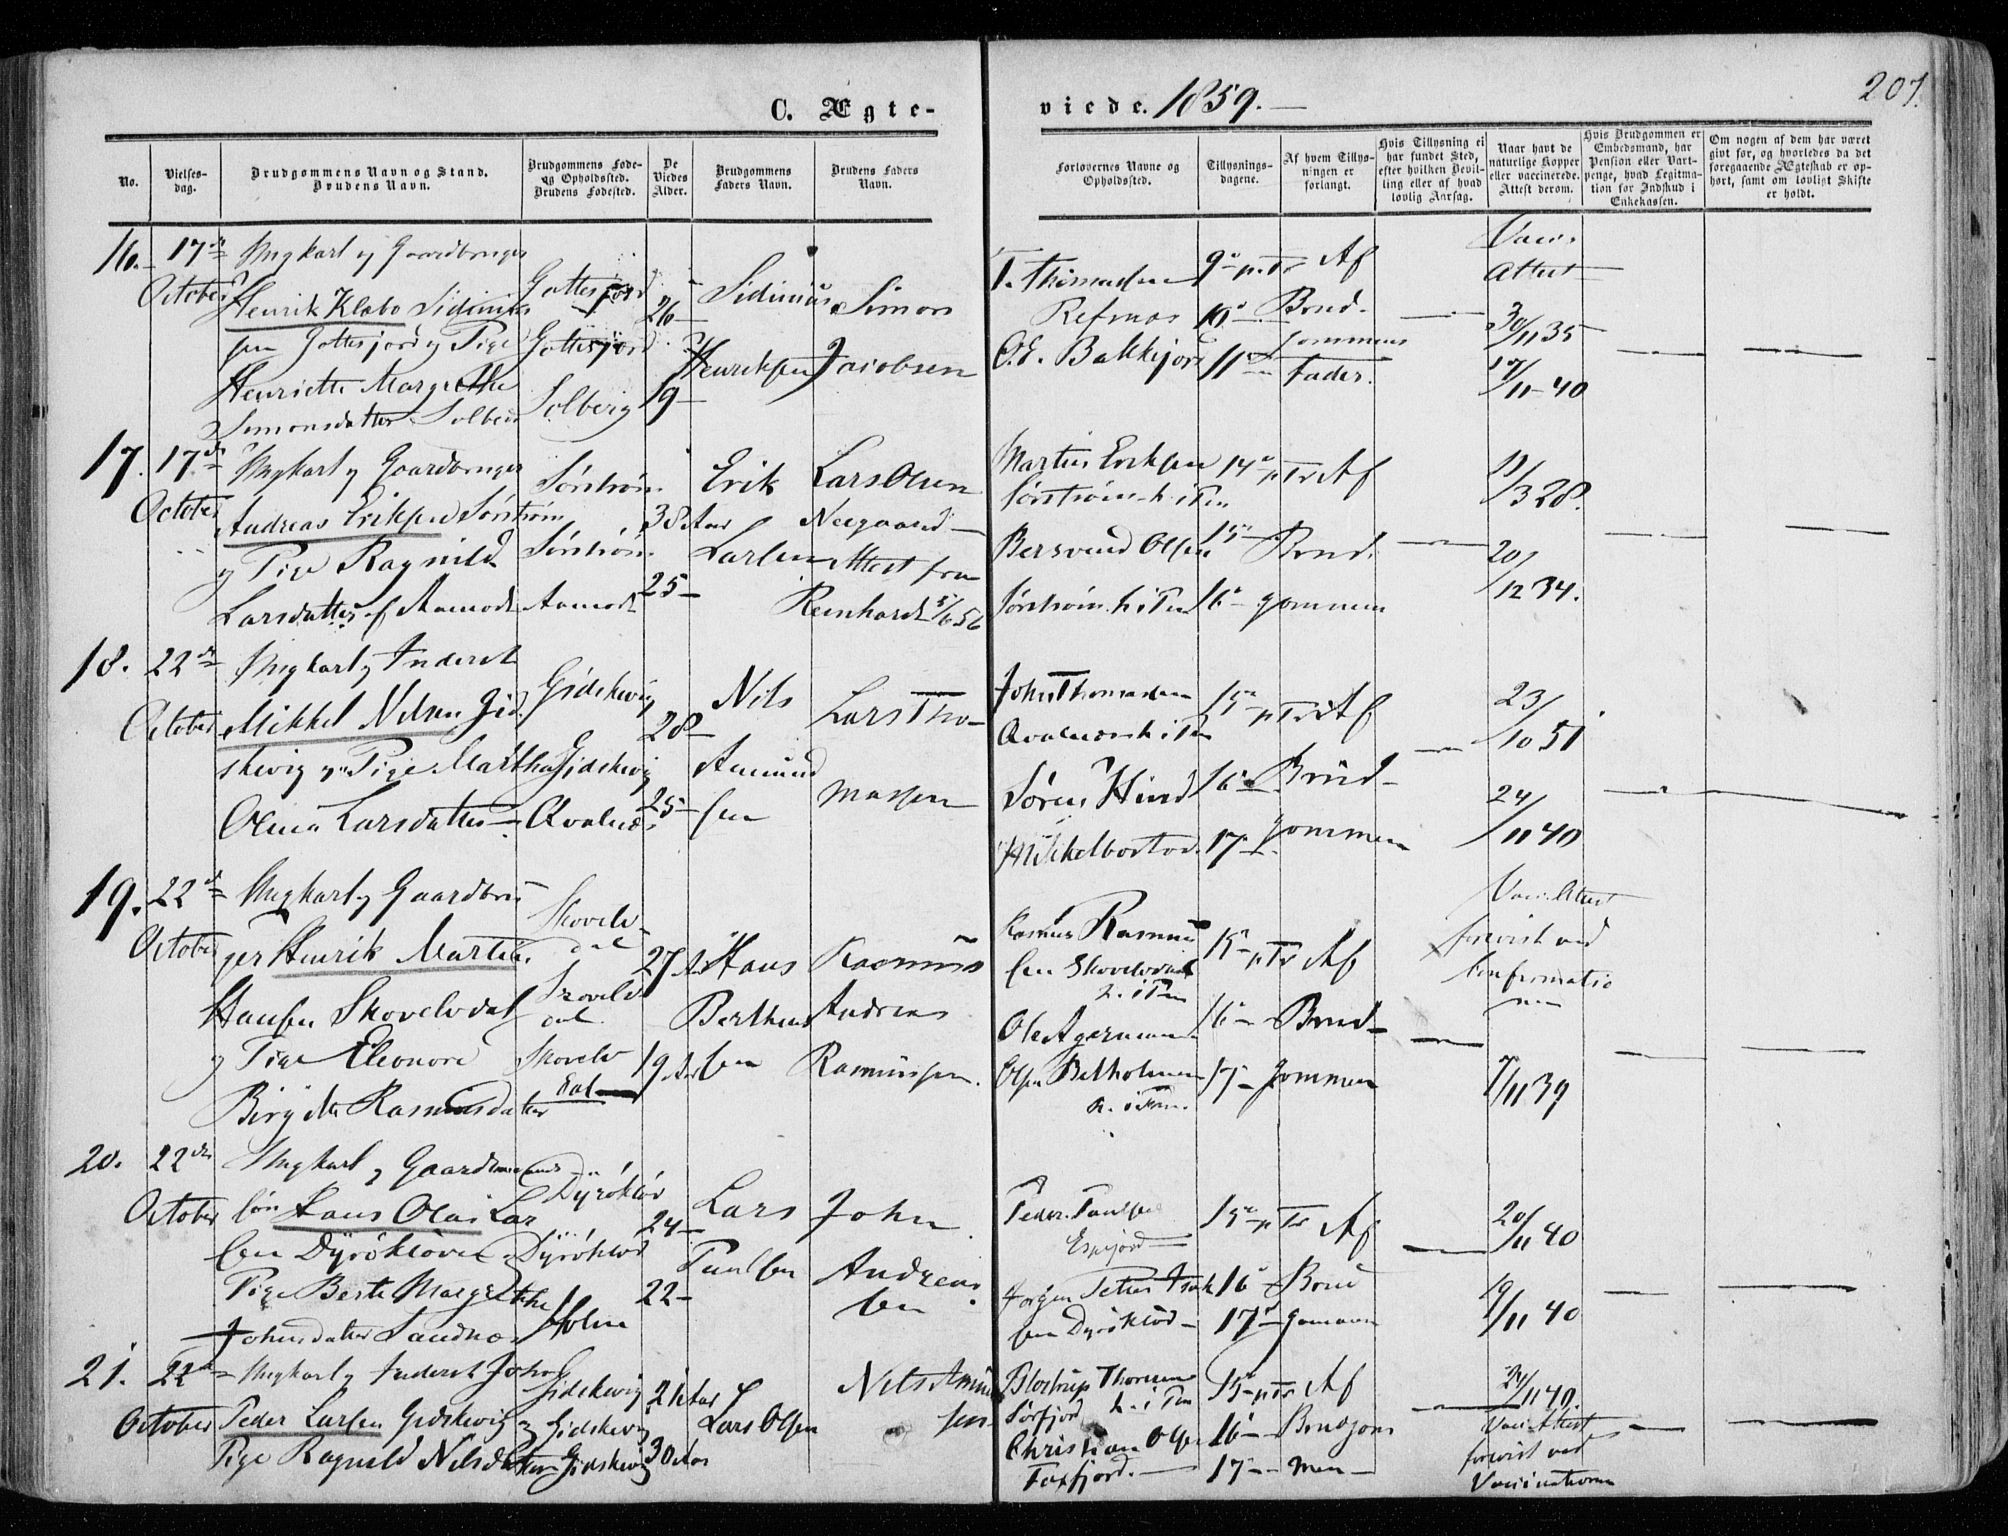 207.
C. Ægte-
viede. 1859.
No.
Vielses-
dag.
Brudgommens Navn og Stand.
Brudens Navn.
Brudgommens Føde-
og Opholdssted.
Brudens Fødested.
De
Viedes
Alder.
Brudgommens
Faders Navn.
Brudens Faders
Navn.
Forlovernes Navne og
Opholdssted.
Tillysnings-
dagene.
Af hvem Tillys-
ningen er
forlangt.
Hvis Tillysning ei
har fundet Sted,
efter hvilken Bevil-
ling eller af hvad
lovlig Aarsag.
Naar havt de
naturlige Kopper
eller vaccinerede.
Attest derom.
Hvis Brudgommen er
Embedsmand, har
Pension eller Vart-
penge, hvad Legitima-
tion for Indskud i
Enkekassen.
Om nogen af dem har været
givt før, og hvorledes da det
foregaaende Ægteskab er op-
hørt, samt om lovligt Skifte
er holdt.
16.
17de
October
Ungkarl og Gaardbruger
Henrik Klæbo Sidinius
sen Gottesjord og Pige
Henriette Margrethe
Simonsdatter Solberg
Gottesjord
Gottesjord
Solberg
26
19
Sidinius
Henriksen
Simon
Jacobsen
T. Thomassen
Refsnæs
O.E. Bakkejord
9de p. Tr.
10de
11de
Af
Brud-
gommens
Fader.
Vacc.
Attest
30/11 35
17/11 40
17.
17de
October
Ungkarl og Gaardbruger
Andreas Eriksen Sørstrøm
og Pige Ragnild
Larsdatter af Aamodt
Sørstrøm
Sørstrøm
Aamodt
38 Aar
25
Erik
Larsen
Lars Olsen
Neegaard
Attest fra
Reinhardt 5/6 56
Martin Eriksen
Sørstrøm h. i Pr.
Bersvend Olsen
Sørstrøm h. i Pr.
14de p. Tr.
15de
16de
Af
Brud-
gommen
11/3 28.
20/12 34.
18.
22de
October
Ungkarl og Inderst
Mikkel Nilsen Gid-
skevig og Pige Martha
Olina Larsdatter
Gidskevig
Gidskevig
Qvalnæs
28
25
Nils
Amund
sen
Lars Tho-
massen
John Thomassen
Qvalnæs h. i Pr.
Søren Hind
Mikkelbostad.
15de p. Tr.
16de
17de
Af
Brud-
gommen
23/10 51
24/11 40
19.
22de
October
Ungkarl og Gaardbru-
ger Henrik Martin
Hansen Skovelvdal
og Pige Eleonore
Birgitte Rasmusdatter
Skovelv
dal
Skovelv
dal
Skovelv
dal
27 Aar
19 Aar
Hans
Bertheus
sen
Rasmus
Andreas
Rasmussen.
Rasmus Rasmus
sen Skovelvdal
h. i Pr.
Ole Agermann
Olsen
h. i Pr.
15de p. Tr.
16de
17de
Af
Brud-
gommen
Vacc. Attest
foreviist ved
Confirmatio
nen
7/11 39
20.
22de
October
Ungkarl og Gaardmands
søn Hans Olai Lar
sen Dyrøkløven
Pige Berte Margrethe
Johnsdatter Sandnæs
Dyrøkløv
Dyrøkløv
Holm
24
22
Lars
Paulsen
John
Andreas
sen
Peder Paulsen
Espejord
Jørgen Petter Isak
sen Dyrøkløv
15de p. Tr.
16de
17de
Af
Brud
gommen
20/11 40
19/11 40
21.
22de
October
Ungkarl og Inderst Johan
Peder Larsen Gidskevig og
Pige Ragnild Nilsdatter Gidskevig
Gidskevig
Gidskevig
21 Aar
30 Aar
Lars Olsen
Nils Amund
sen
Blostrup Thoresen
Sørfjord h. i Pr.
Christian Olsen
Faxfjord.
15de p. Tr.
16de
17de
Af
Brudgom
men
24/11 40.
Vacc. Attest
foreviist ved
Vaccinationen